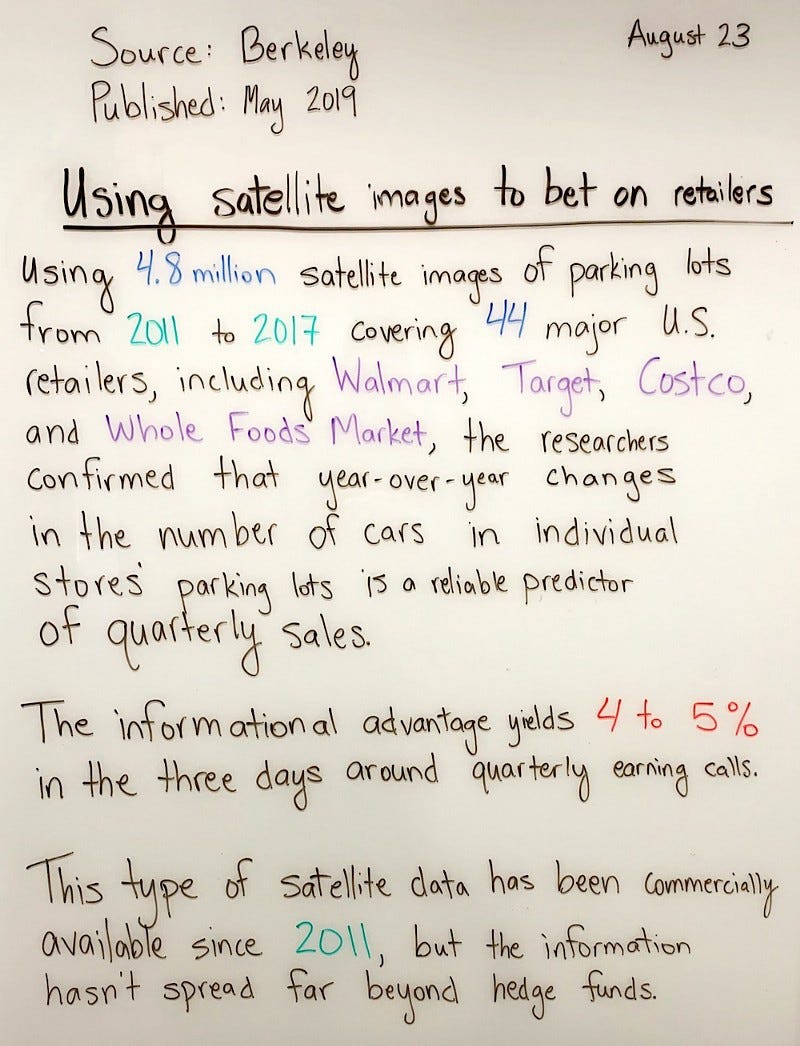 Source: Berkeley
August 23
Published: May 2019
Using satellite images to bet on retailers
Using 4.8 million satellite images of parking lots
from 2011 to 2017 covering 44 major U.S.
retailers, including Walmart, Target, Costco,
and Whole Foods Market, the researchers
confirmed that year-over-year changes
in the number of cars in individual
stores' parking lots is a reliable predictor
of quarterly sales.
The informational advantage yields 4 to 5%
in the three days around quarterly earning calls.
This type of satellite data has been commercially
available since 2011, but the information
hasn't spread far beyond hedge funds.